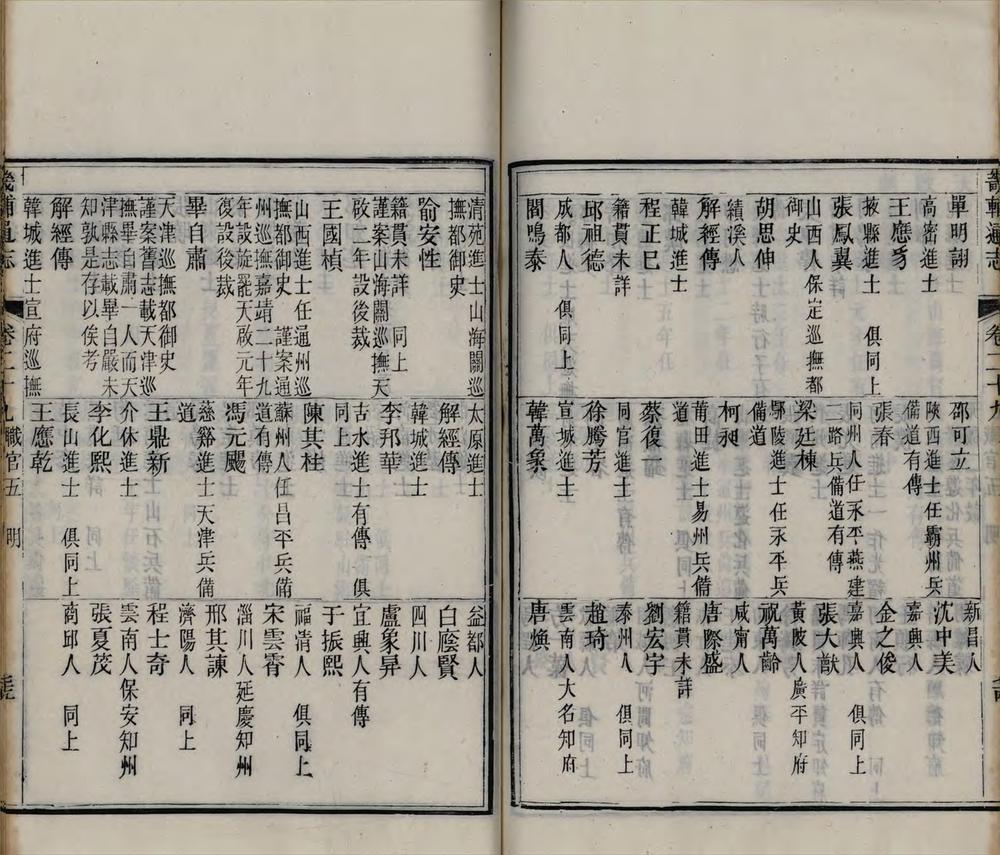 畿輔通志
卷二十九
單明詡
高密進士
王應豸
掖縣進士　俱同上
張鳳翼
山西人保定巡撫都
御史
胡思伸
績溪人
解經傳
韓城進士
程正巳
籍貫未詳　同上
邱祖德
成都人　俱同上
閻鳴泰
邵可立
陝西進士任霸州兵
備道有傳
張春
同州人任永平燕建
二路兵備道有傳
梁廷棟
鄢陵進士任永平兵
備道
柯昶
莆田進士易州兵備
道
蔡復一
同官進士
徐騰芳
宣城進士
韓萬象
新昌人
沈中美
嘉興人
金之俊
嘉興人　俱同上
張大猷
黃陂人廣平知府
祝萬齡
咸甯人
唐際盛
籍貫未詳
劉宏宇
泰州人　俱同上
趙琦
雲南人大名知府
唐煥
清苑進士山海關巡
撫都御史
喻安性
籍貫未詳　同上
謹案山海關巡撫天
啟二年設後裁
王國楨
山西進士任通州巡
撫都御史　謹案通
州巡撫嘉靖二十九
年設旋罷天啟元年
復設後裁
畢自肅
天津巡撫都御史
謹案舊志載天津巡
撫畢自肅一人而天
津縣志載畢自嚴未
知孰是存以俟考
解經傳
韓城進士宣府巡撫
太原進士
解經傳
韓城進士
李邦華
吉水進士有傳　俱
同上
陳其柱
蘇州人任昌平兵備
道有傳
馮元颺
慈谿進士天津兵備
道
王鼎新
介休進士
李化熙
長山進士　俱同上
王應乾
益都人
白廕賢
四川人
盧象昇
宜興人有傳
于振熙
福清人　俱同上
宋雲霄
淄川人延慶知州
邢其諫
濟陽人　同上
程士奇
雲南人保安知州
張夏茂
商邱人　同上
畿輔通志
卷二十九　職官五　明